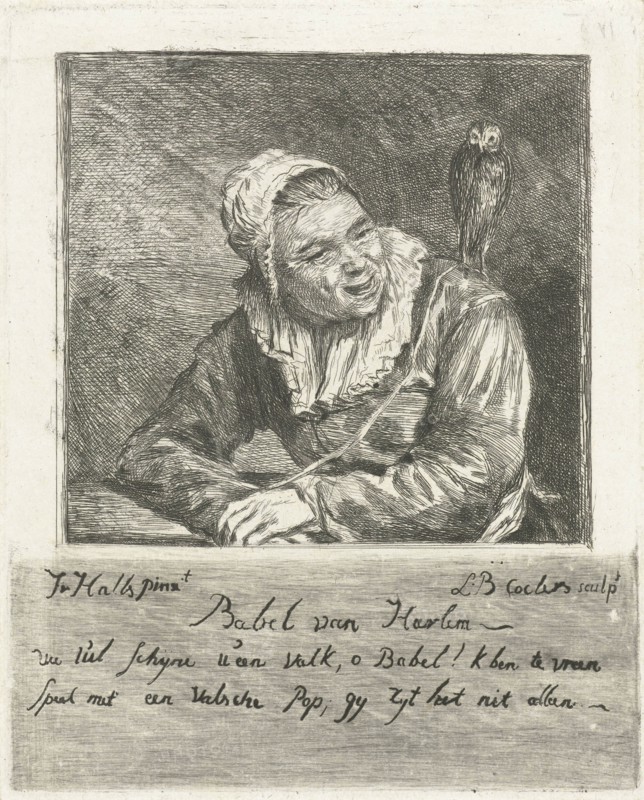 Fr Halls pinxt L: B Coclers sculpt
Babel van Harlem
uw Uil schyne u een Valk, o Babel! k ben te vreen
Speel met een Valsche Pop, gy zyt het nit alleen